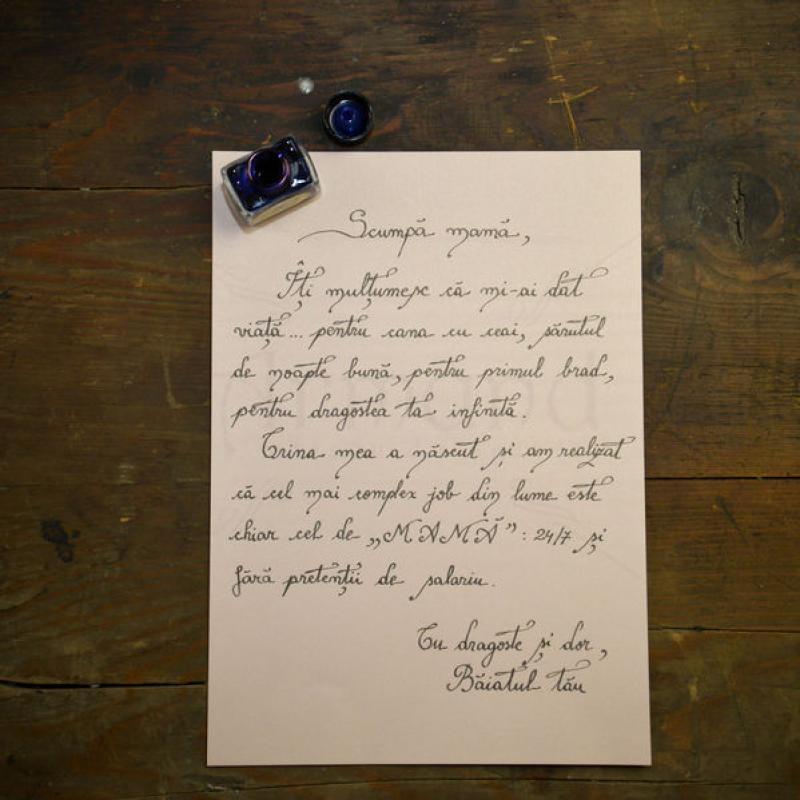 Scumpă mamă,
Îți mulțumesc că mi-ai dat
viață... pentru cana cu ceai, sărutul
de noapte bună, pentru primul brad,
pentru dragostea ta infinită.
Crina mea a născut și am realizat
că cel mai complex job din lume este
chiar cel de „MAMĂ” : 24/7 și
fără pretenții de salariu.
Cu dragoste și dor,
Băiatul tău